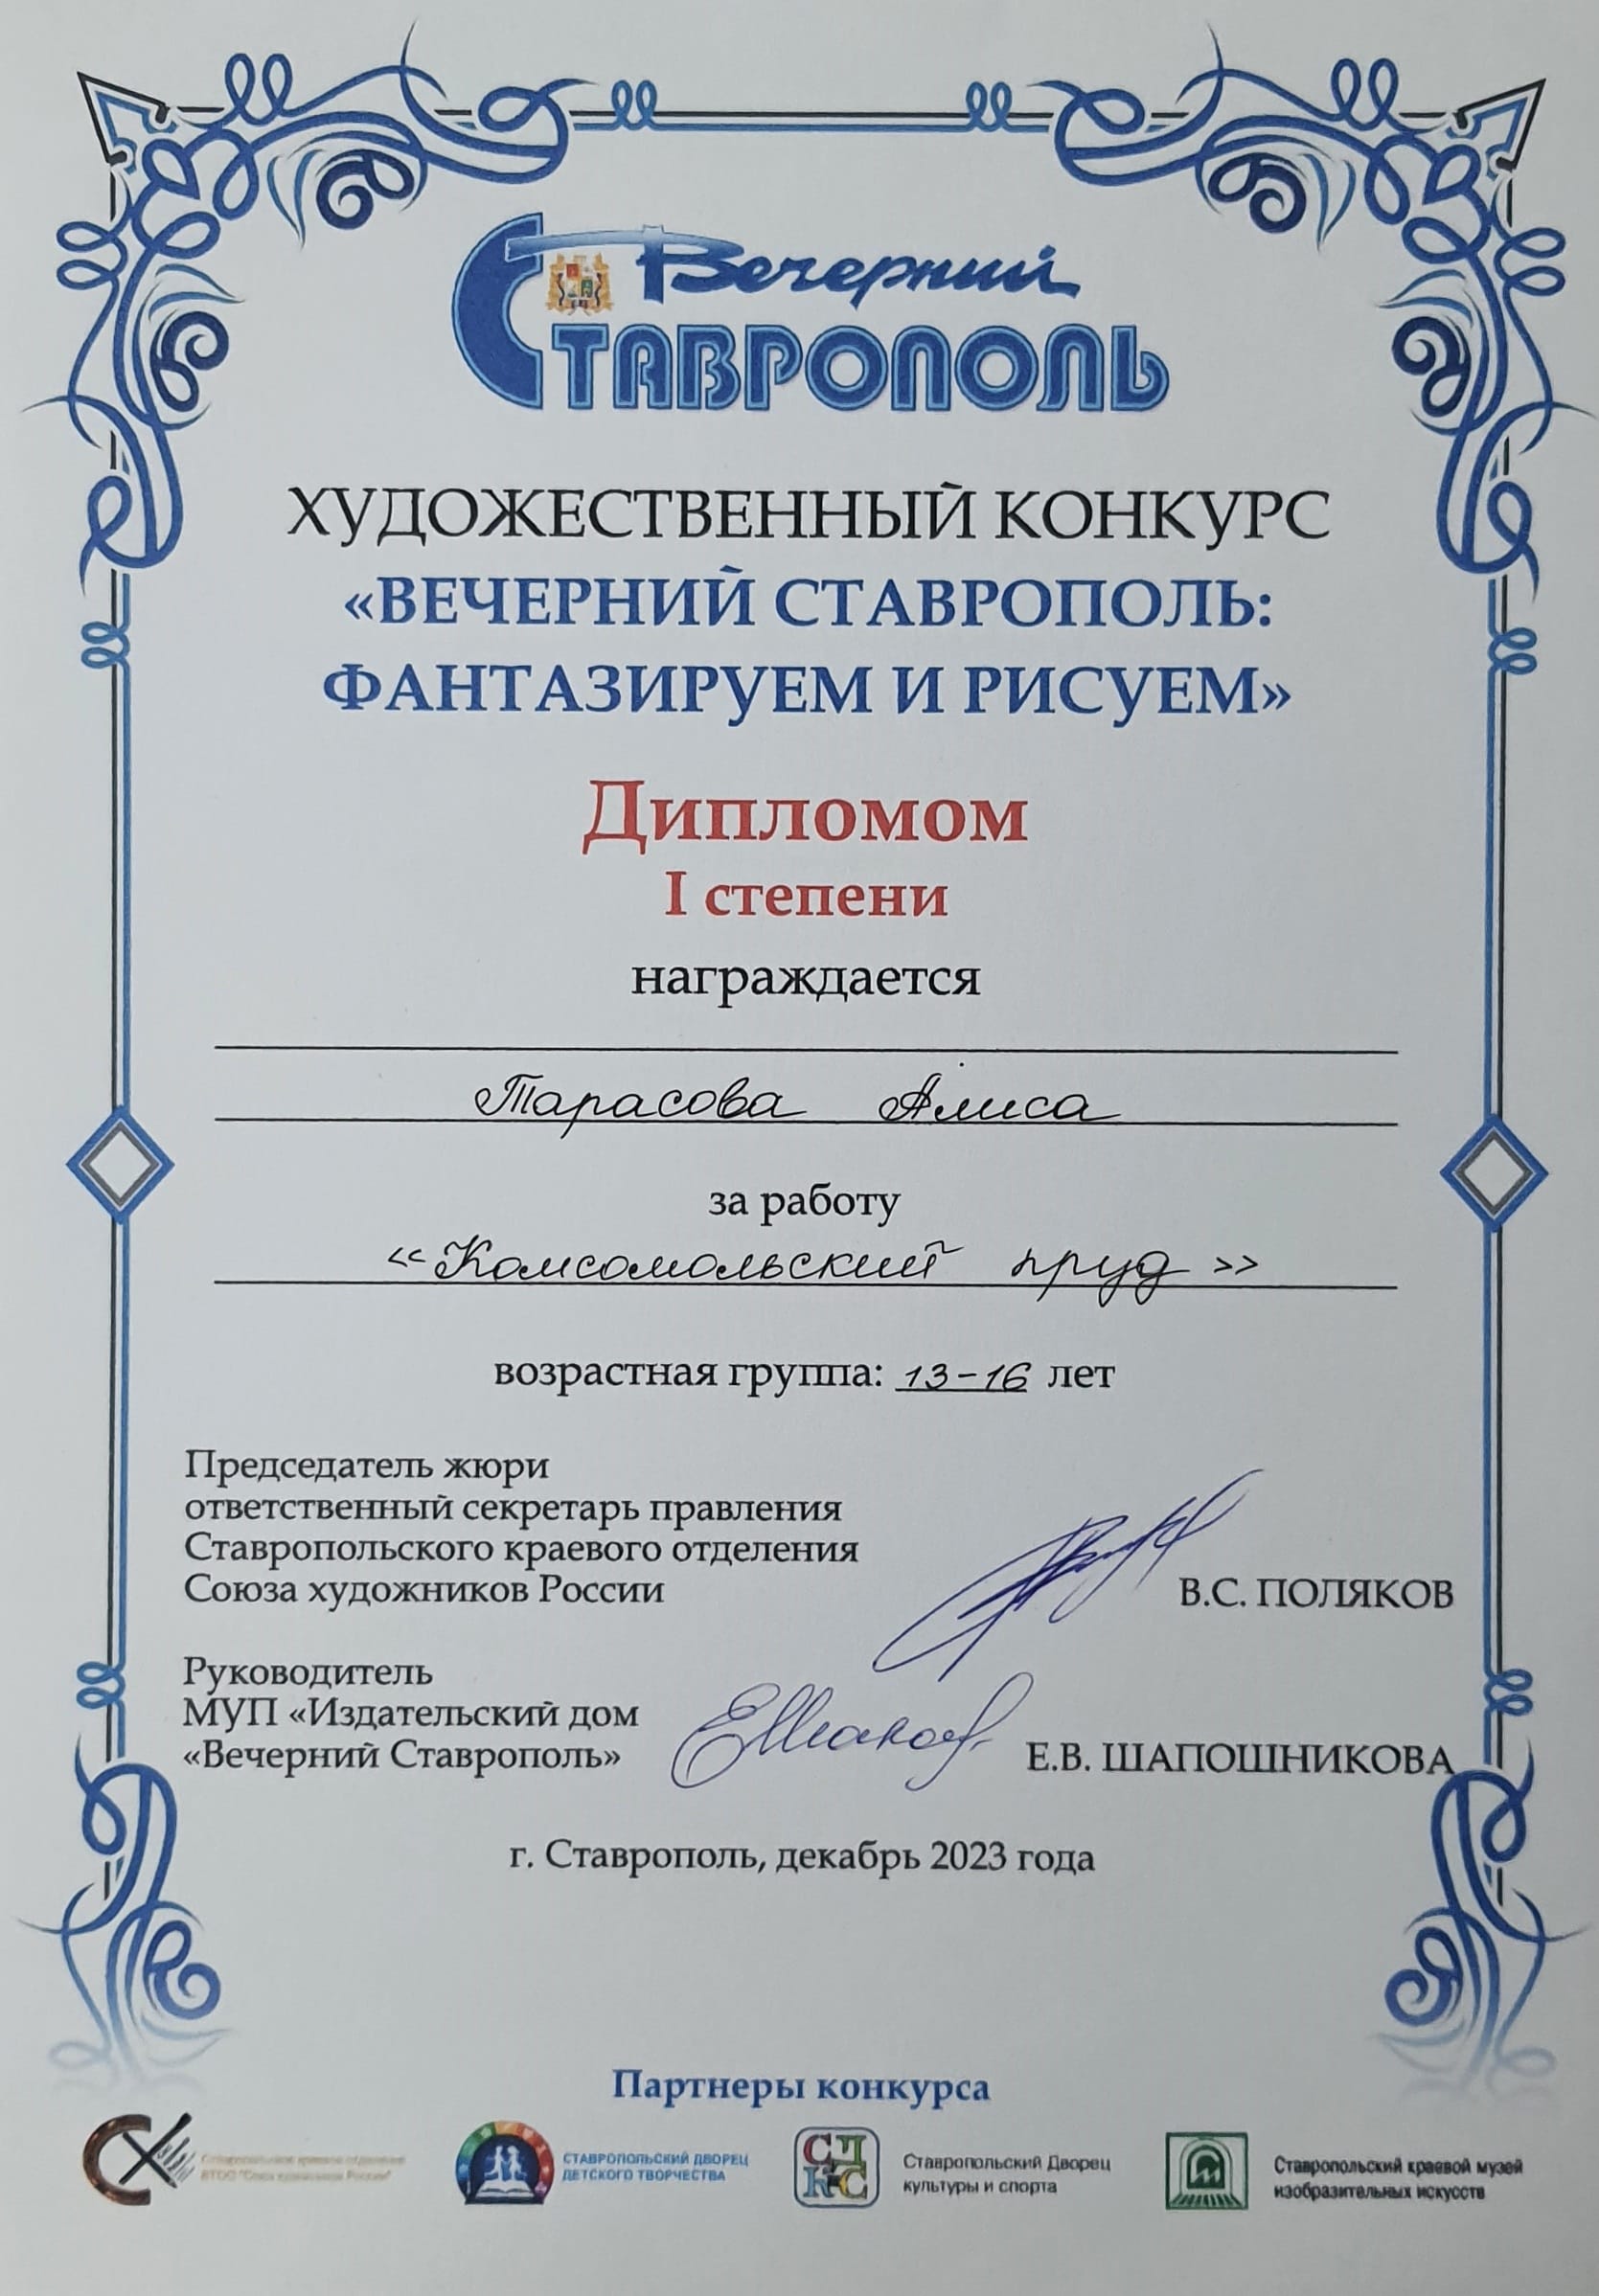 Вечерний
СТАВРОПОЛЬ
ХУДОЖЕСТВЕННЫЙ КОНКУРС
«ВЕЧЕРНИЙ СТАВРОПОЛЬ:
ФАНТАЗИРУЕМ И РИСУЕМ»
Дипломом
I степени
награждается
Тарасова Алиса
за работу
«Комсомольский пруд»
возрастная группа: 13-16 лет
Председатель жюри
ответственный секретарь правления
Ставропольского краевого отделения
Союза художников России
В.С. ПОЛЯКОВ
Руководитель
МУП «Издательский дом
«Вечерний Ставрополь»
Е.В. ШАПОШНИКОВА
г. Ставрополь, декабрь 2023 года
Партнеры конкурса
Ставропольское краевое отделение
ВТОО "Союз художников России"
СТАВРОПОЛЬСКИЙ ДВОРЕЦ
ДЕТСКОГО ТВОРЧЕСТВА
СДКС
Ставропольский Дворец
культуры и спорта
Ставропольский краевой музей
изобразительных искусств